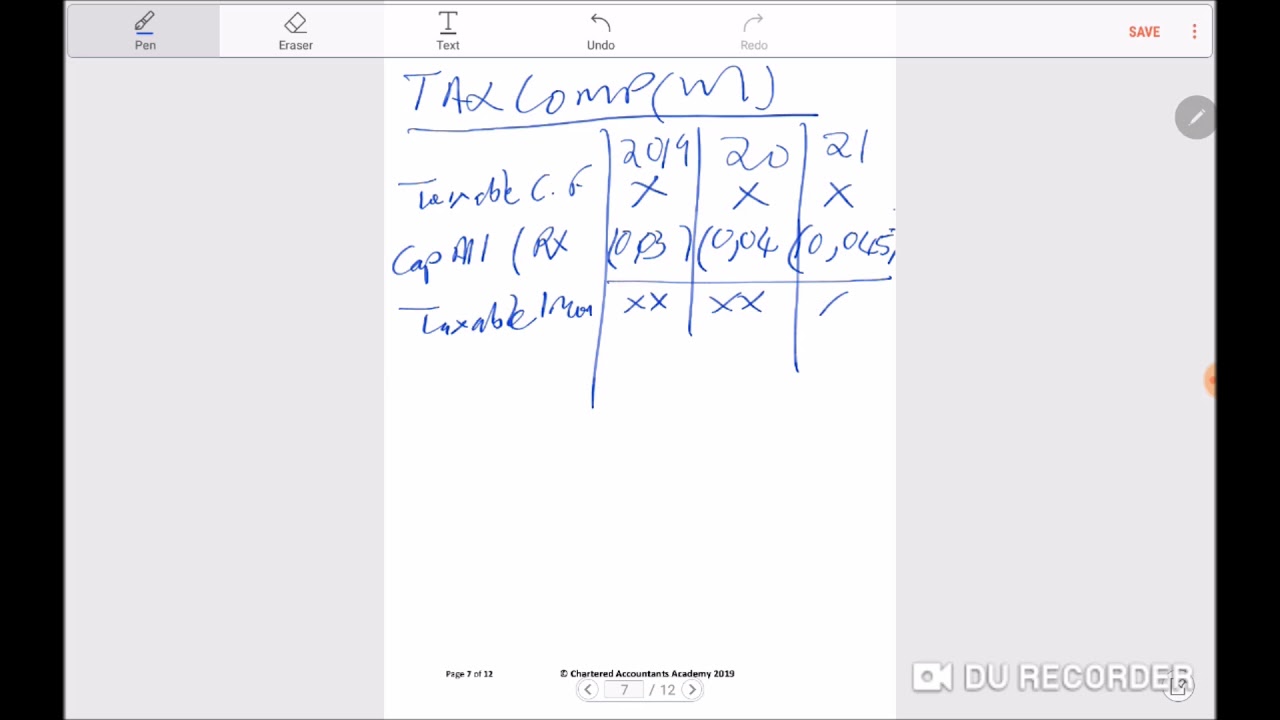 Pen Eraser Text Undo Redo SAVE
TAX COMP (W1)
2019 20 21
Taxable C.F X X X
Cap All (RX (0,03) (0,04 (0,045,
Taxable Incom XX XX /
Page 7 of 12 © Chartered Accountants Academy 2019
7 / 12
DU RECORDER